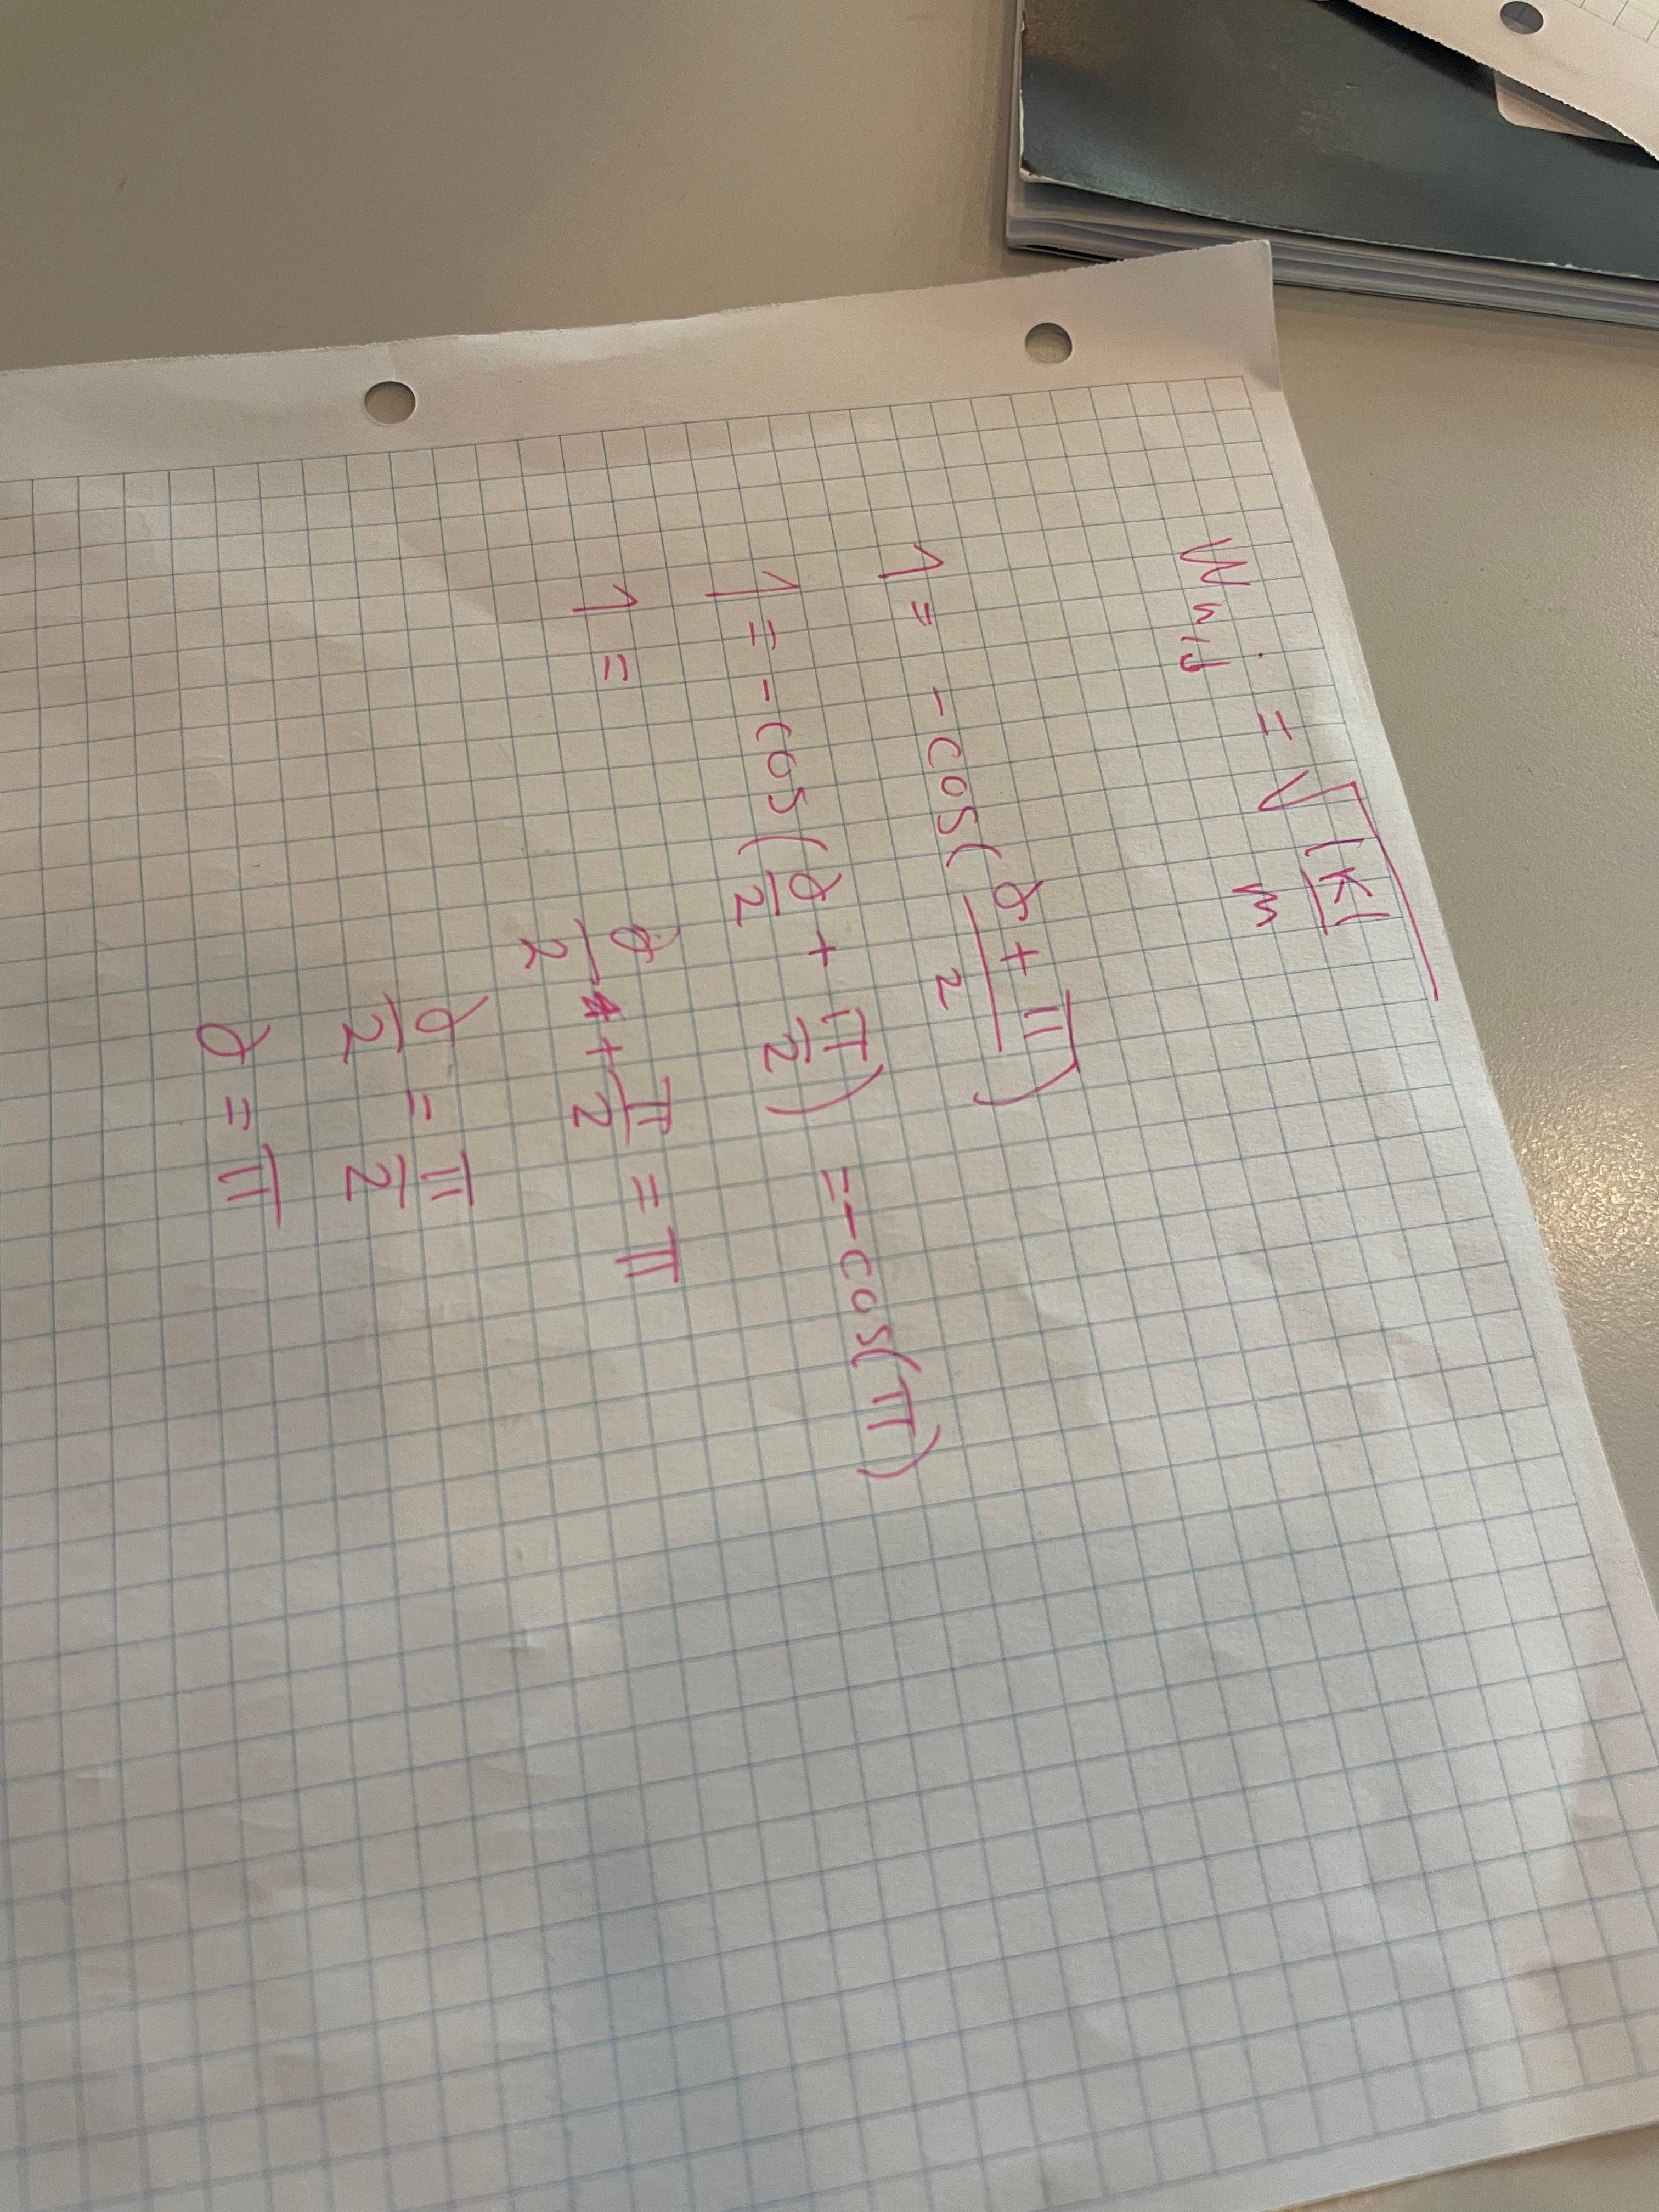 W n,j = √|K|/m
1 = -cos(∂+π/2)
1 = -cos(∂/2 + π/2) = -cos(π)
1 =
∂/2 + π/2 = π
∂/2 = π/2
∂ = π